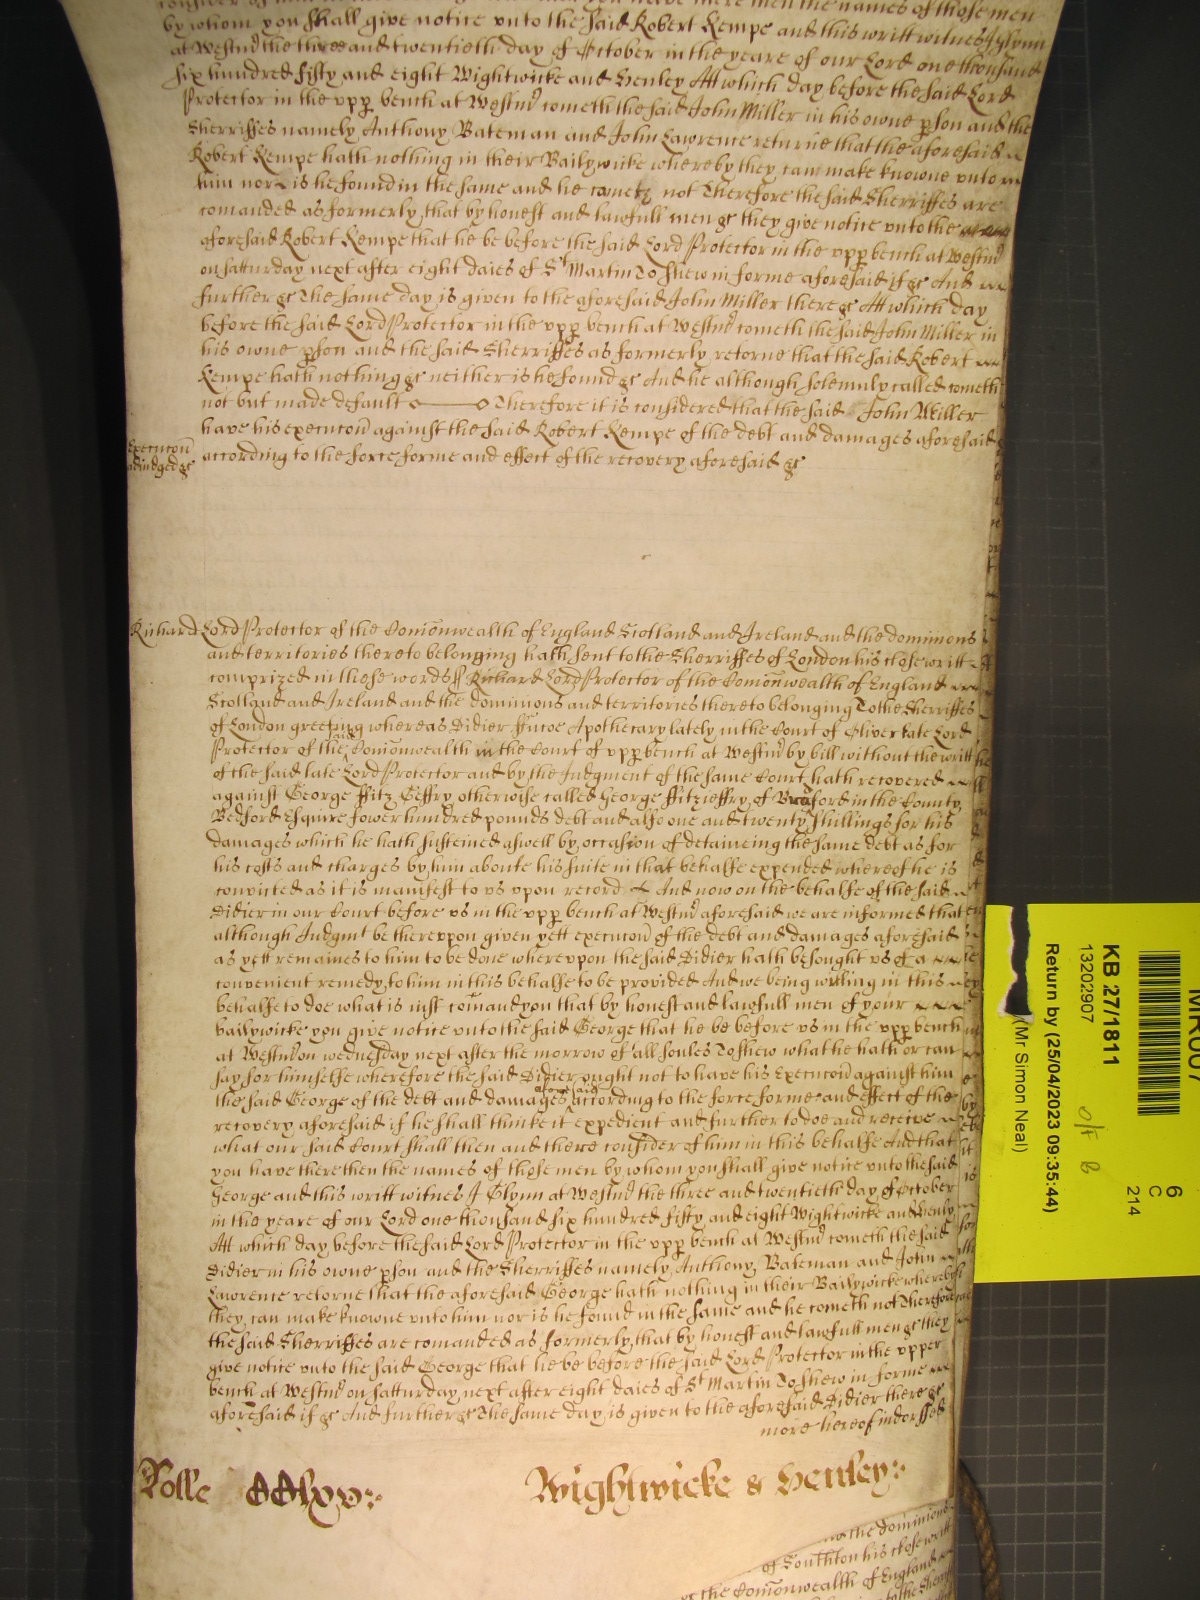 consider of him in this behalfe And that you have there then the names of those men
by whom you shall give notice vnto the said Robert Kempe and this writt witnes J Glynn
at Westmr the three and twentieth day of October in the yeare of our Lord one thousand
six hundred fifty and eight Wightwicke and Henley Att which day before the said Lord
Protector in the vpp bench at Westmr cometh the said John Miller in his owne pson and the
Sherriffes namely Anthony Bateman and John Lawrence returne that the aforesaid
Robert Kempe hath nothing in their Bailywicke whereby they can make knowne vnto
him nor is he found in the same and he cometh not Therefore the said Sherriffes are
comanded as formerly that by honest and lawfull men &c they give notice vnto the
aforesaid Robert Kempe that he be before the said Lord Protector in the vpp bench at Westmr
on Satturday next after eight daies of St Martin To shew in forme aforesaid if &c And
further &c The same day is given to the aforesaid John Miller there &c Att which day
before the said Lord Protector in the vpp bench at Westmr cometh the said John Miller in
his owne pson and the said Sherriffes as formerly retorne that the said Robert
Kempe hath nothing &c neither is he found &c And he although solemnly called cometh
not but made default Therefore it is considered that the said John Miller
have his execucon against the said Robert Kempe of the debt and damages aforesaid
Execucon
adiudged &c
according to the force forme and effect of the recovery aforesaid &c
Richard Lord Protector of the Comonwealth of England Scotland and Ireland and the dominions
and territories thereto belonging hath sent to the Sherriffes of London his close writt
comprized in these words ss Richard Lord Protector of the Comonwealth of England
Scotland and Ireland and the dominions and territories thereto belonging To the Sherriffes
of London greeting whereas Didier ffucoe Apothecary lately in the Court of Oliver late Lord
Protector of the said Comonwealth in the Court of vpp bench at Westmr by bill without the writt
of the said late Lord Protector and by the Judgment of the same Court hath recovered
against George ffitz Geffry otherwise called George ffitzieffry of in the County
Bedford Esquire fower hundred pounds debt and also one and twenty shillings for his
damages which he hath susteined aswell by occasion of detaineing the same debt as for
his costs and charges by him aboute his suite in that behalfe expended whereof he is
convicted as it is manifest to vs vpon record And now on the behalfe of the said
Didier in our Court before vs in the vpp bench at Westmr aforesaid we are informed that
although Judgmt be therevpon given yett execucon of the debt and damages aforesaid
as yett remaines to him to be done wherevpon the said Didier hath besought vs of a
convenient remedy to him in this behalfe to be provided And we being willing in this
behalfe to doe what is iust comand you that by honest and lawfull men of your
bailywicke you give notice vnto the said George that he be before vs in the vpp bench
at Westmr on wednesday next after the morrow of all soules To shew what he hath or can
say for himselfe wherefore the said Didier ought not to have his Execucon against him
the said George of the debt and damages aforesaid according to the force forme and effect of the
recovery aforesaid if he shall thinke it expedient and further to doe and receive
what our said Court shall then and there consider of him in this behalfe And that
you have there then the names of those men by whom you shall give notice vnto the said
George and this writt witnes J Glynn at Westmr the three and twentieth day of October
in the yeare of our Lord one thousand six hundred fifty and eight Wightwicke and Henly
Att which day before the said Lord Protector in the vpp bench at Westmr cometh the said
Didier in his owne pson and the Sherriffes namely Anthony Bateman and John
Lawrence retorne that the aforesaid George hath nothing in their Bailywicke whereby
they can make knowne vnto him nor is he found in the same and he cometh not Therefore
the said Sherriffes are comanded as formerly that by honest and lawfull men &c they
give notice vnto the said George that he be before the said Lord Protector in the vpper
bench at Westmr on satturday next after eight daies of St Martin To shew in forme
aforesaid if &c And further &c The same day is given to the aforesaid Didier there &c
more hereof indorssed
Rolle CClxx
Wightwicke & Henley
the dominions
of Southton his close writt
of the Comonwealth of England
KB 27/1811
13202907
Return by (25/04/2023 09:35:44)
(Mr Simon Neal)
6
C
214